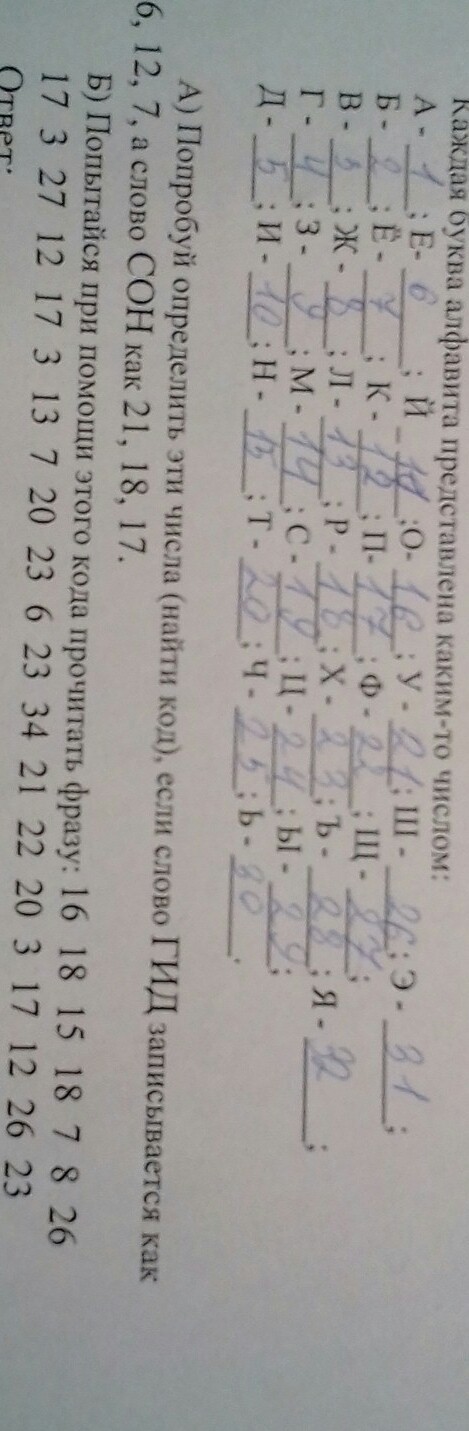 Каждая буква алфавита представлена каким-то числом:
А - 1; Е- 6; Й - 11; О- 16; У - 21; Ш - 26; Э - 31;
Б - 2; Ё - 7; К - 12; П- 17; Ф - 22; Щ - 27;
В - 3; Ж - 8; Л - 13; Р - 18; Х - 23; Ъ - 28; Я - 32;
Г - 4; З - 9; М - 14; С - 19; Ц - 24; Ы - 29;
Д - 5; И - 10; Н - 15; Т - 20; Ч - 25; Ь - 30.
А) Попробуй определить эти числа (найти код), если слово ГИД записывается как
6, 12, 7, а слово СОН как 21, 18, 17.
Б) Попытайся при помощи этого кода прочитать фразу: 16 18 15 18 7 8 26
17 3 27 12 17 3 13 7 20 23 6 23 34 21 22 20 3 17 12 26 23
Ответ: